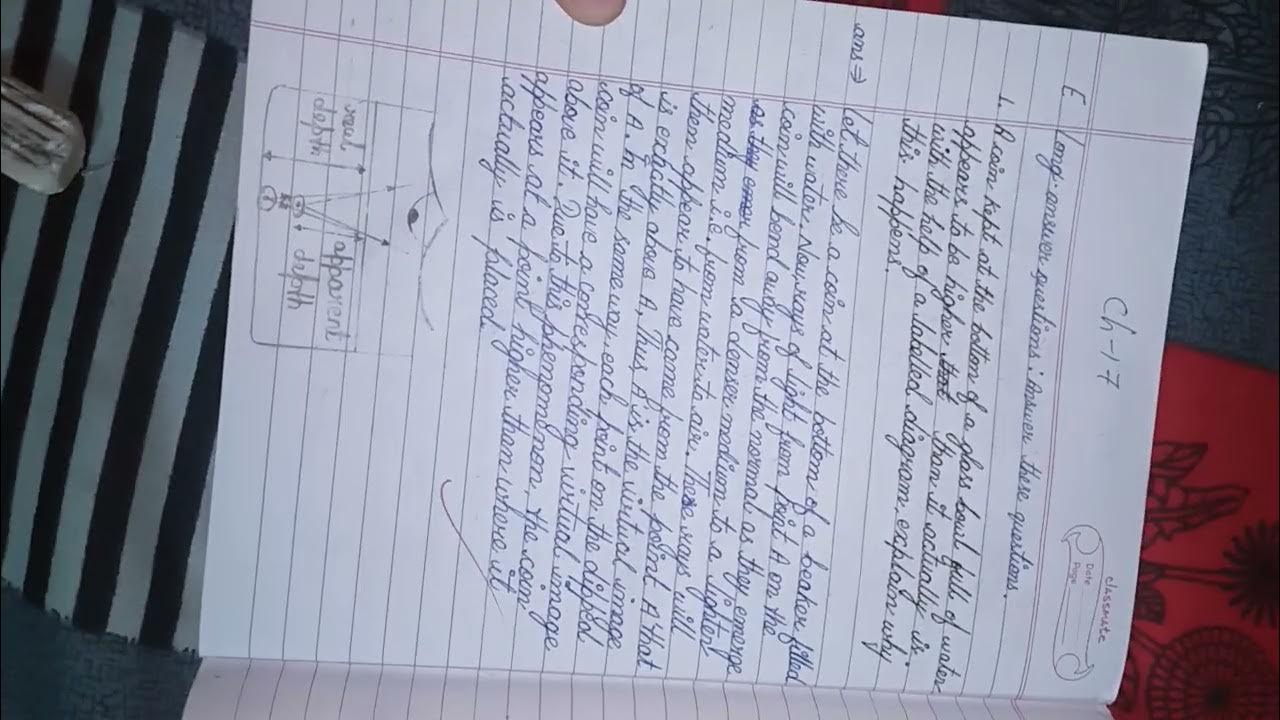 classmate
Date
Page
Ch-17
E Long-answer questions: Answer these questions.
1. A coin kept at the bottom of a glass bowl full of water
appears to be higher than it actually is.
with the help of a labelled diagram, explain why
this happens.
ans⇒ Let there be a coin at the bottom of a beaker filled
with water. Now, rays of light from point A on the
coin will bend away from the normal as they emerge
from a denser medium to a lighter
medium i.e. from water to air. These rays will
then appear to have come from the point A' that
is exactly above A. Thus, A' is the virtual image
of A. In the same way, each point on the dipped
coin will have a corresponding virtual image
above it. Due to this phenomenon, the coin
appears at a point higher than where it
actually is placed.
real
depth
apparent
depth